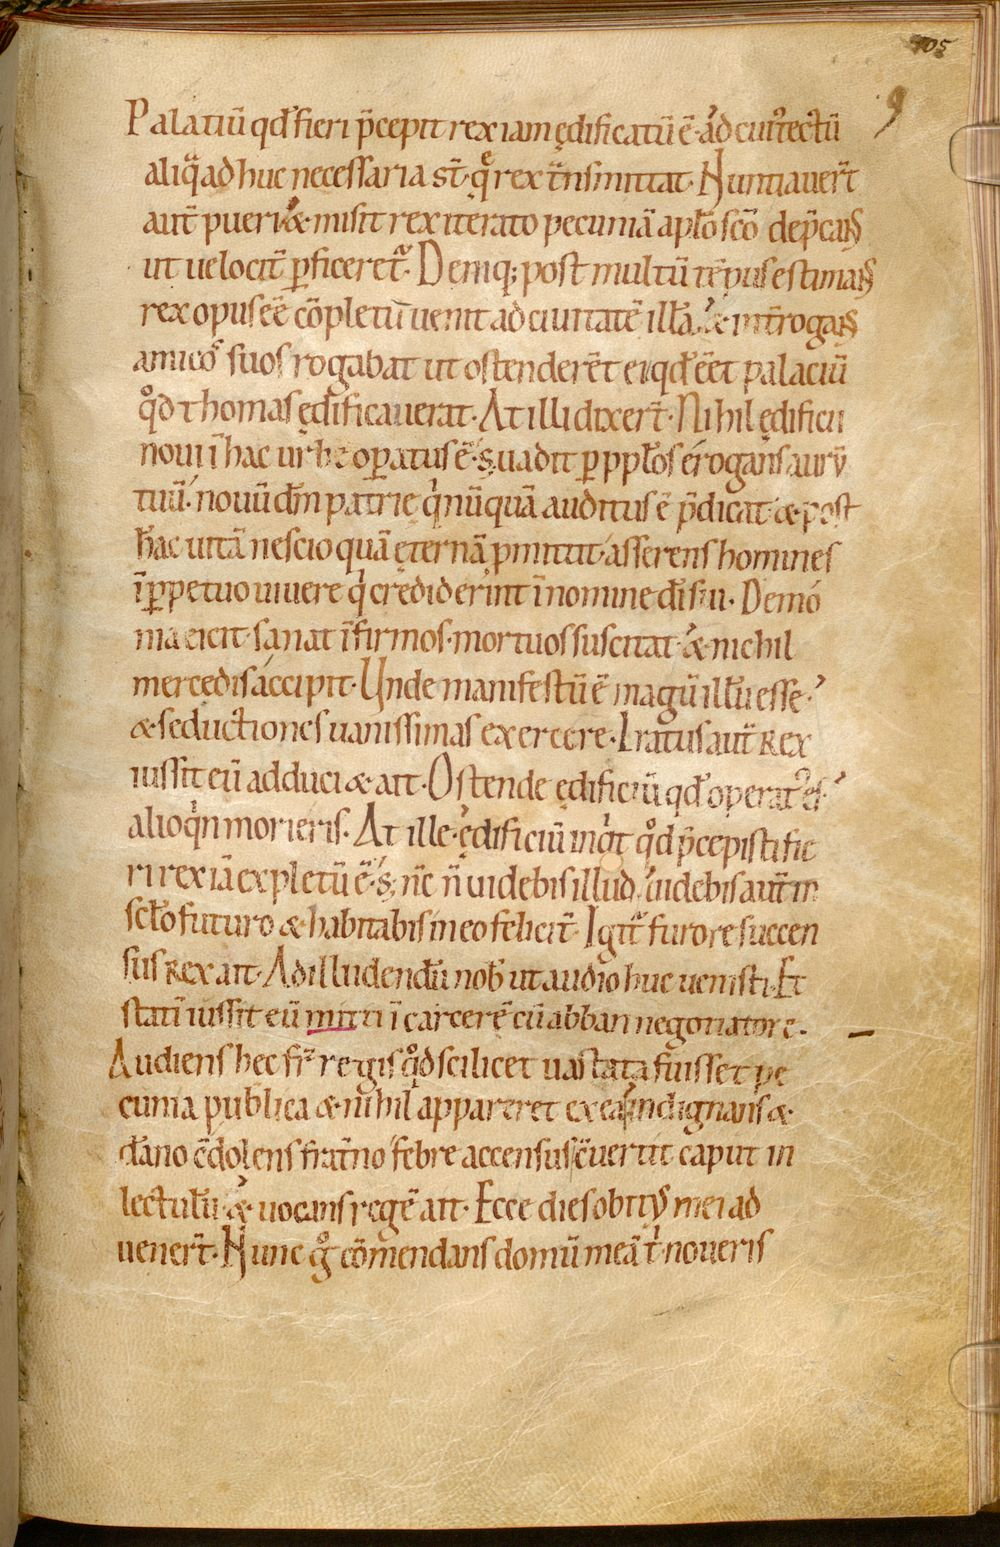 105
9
Palatiū qd̄ fieri p̄cepit rex iam ędificatū ē· ad cui᷒ tectū
aliq̄ adhuc necessaria st̄· quę rex t̄nsmittat· Nuntiauer̄t
aut̄ pueri· & misit rex iterato pecuniā aplō scō dep̄cans
ut uelocit̄ ꝑficeret᷒. Deniq; post multū tēpus estimans
rex opus eē cōpletū uenit ad ciuitatē illā. & int̄rogans
amicos suos rogabat ut ostenderēt ei qd̄ eēt palaciū
qd̄ thomas ędificauerat· At illi dixer̄t· Nihil ędificii
noui ī hac urbe operatus ē· s; uadit ꝑ pplōs erogans aurū
tuū· nouū dm̄ patrie qi nūquā auditus ē p̄dicat· & post
hāc uitā nescio quā ęternā ꝓmittit· asserens homines
īꝑpetuo uiuere qi crediderint ī nomine dī sui· Demo
nia eicit· sanat īfirmos· mortuos suscitat· & nichil
mercedis accipit· Unde manifestū ē magū illū esse·
& seductiones uanissimas exercere· Iratus aut̄ rex
iussit eū adduci & ait· Ostende ędificiū qd̄ operat᷒ es·
alioqin morieris· At ille· ędificiū inqit qd̄ p̄cepisti fie
ri rex iā expletū ē· s; nc̄ n̄ uidebis illud· uidebis aut̄ in
sclō futuro & habitabis in eo felicit̄· Igit᷒ furore succen
sus rex ait· Ad illudendū nob̄ ut audio huc uenisti· Et
statī iussit eū mitti ī carcerē cū abban negotiatore·
Audiens hec fr̄ regis qd̄ scilicet uastata fuisset pe
cunia publica & nihil appareret ex ea· indignans &
dāno cōdolens frat̄no febre accensus euertit caput in
lectulū· & uocans regē ait· Ecce dies obitus mei ad
uener̄t· Nunc gͦ cōmendans domū meā ti noueris